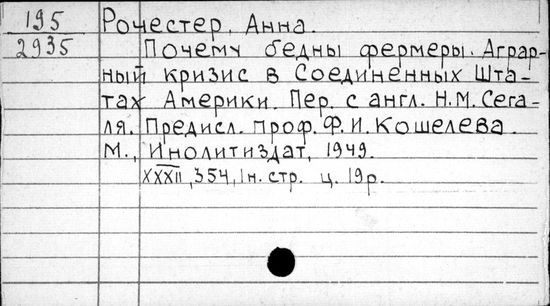 195 Рочестер, Анна.
2935 Почему бедны фермеры. Аграр-
ный кризис в Соединенных Шта-
тах Америки. Пер. с англ. Н.М. Сега-
ля. Предисл. проф. Ф.И. Кошелева.
М., Инолитиздат, 1949.
XXXII, 354, 1н. стр. ц. 19р.